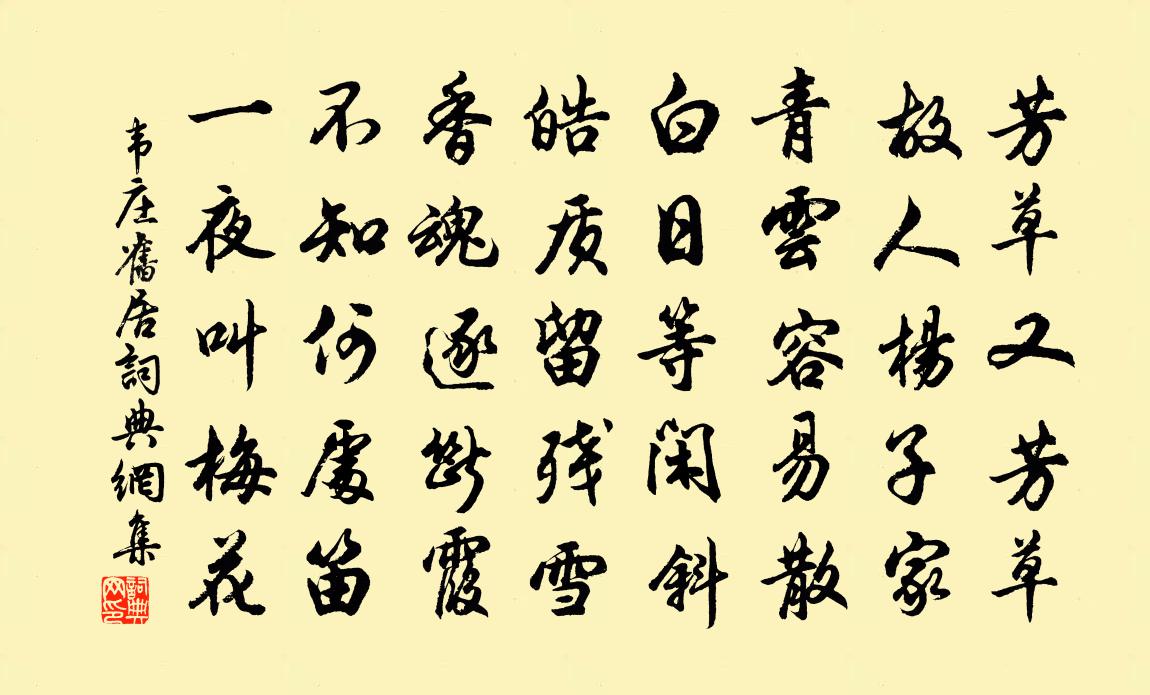 芳草又芳草
故人楊子家
青雲容易散
白日等闲斜
皓质留残雪
香魂逐断霞
不知何處笛
一夜叫梅花
韦庄舊居詞典網集
詞典网印